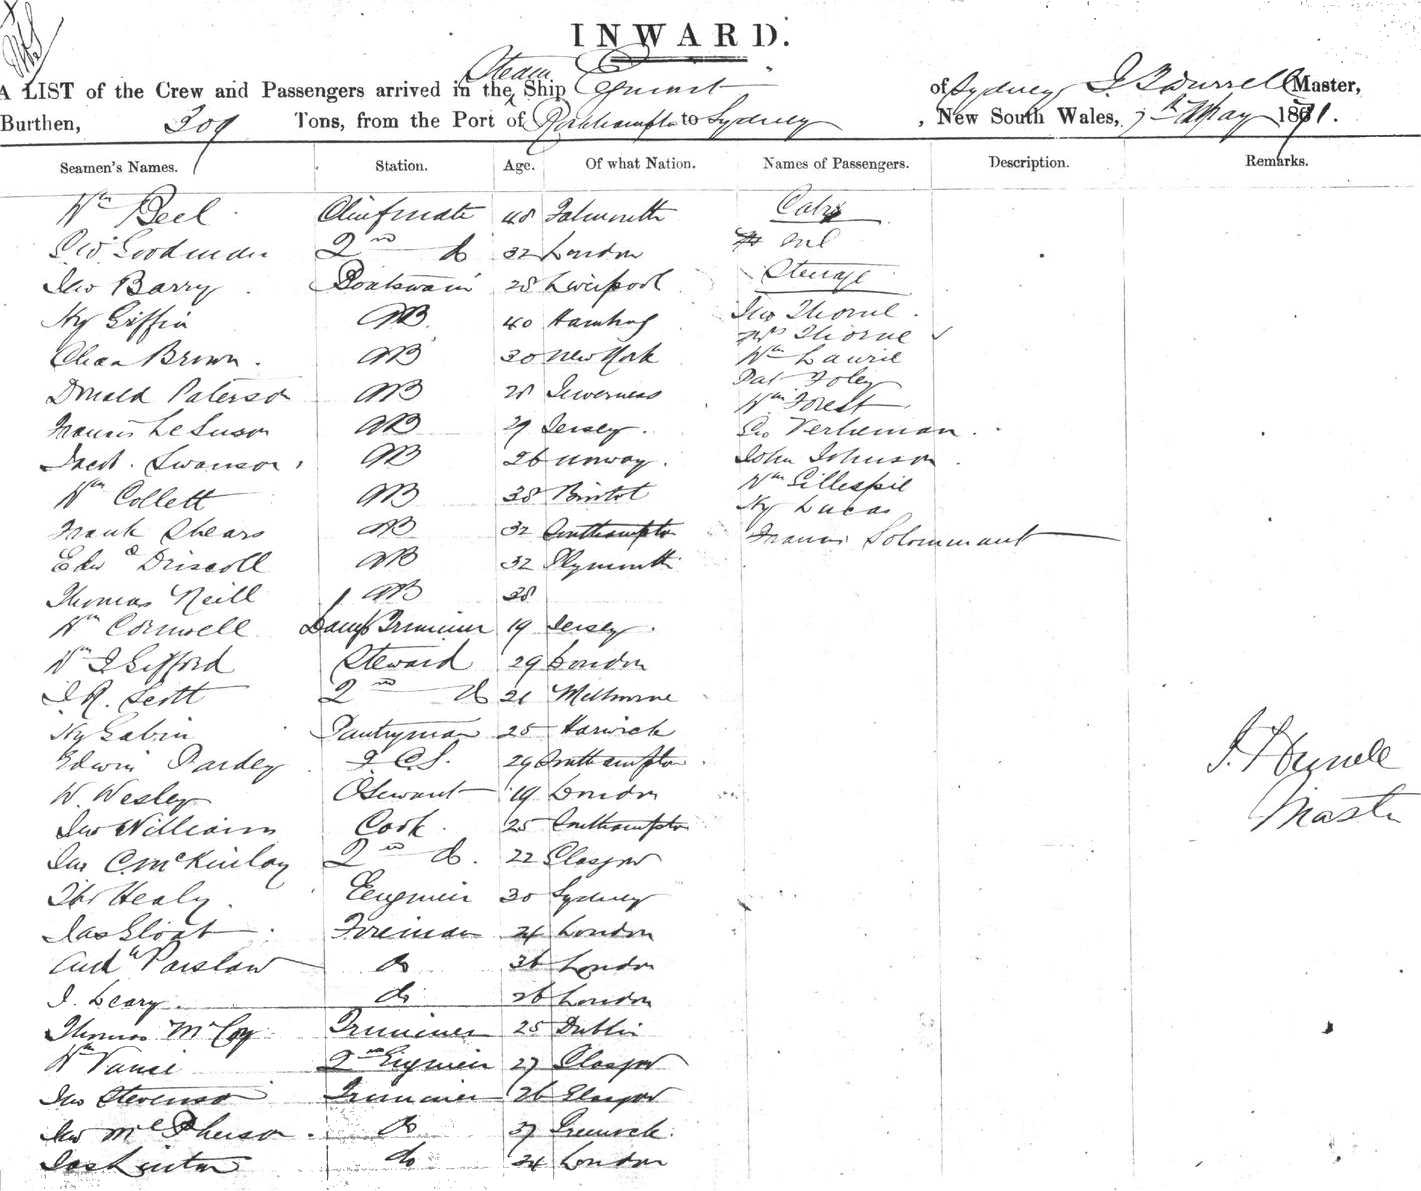 INWARD.
A LIST of the Crew and Passengers arrived in the Steam Ship of Sydney Master,
Burthen, 309 Tons, from the Port of Rockhampton to Sydney, New South Wales, 7th May 1871.
Seamen's Names. Station. Age. Of what Nation. Names of Passengers. Description. Remarks.
Wm Peel Chief mate 48 Falmouth
Geo Goodman 2nd do 32 London
Jno Barry Boatswain 28 Liverpool Steerage
Hy Giffin AB 40 Hamburg Jno Thorne
Mrs Thorne
Chas Brown AB 30 New York Wm Laurie
Donald Paterson AB 28 Inverness Pat Foley
Wm Forest
Francis Le Sueur AB 29 Jersey Geo
Jacob Swanson AB 26 Norway John Johnson
Wm Collett AB 38 Bristol Wm Gillespie
Hy Lucas
Frank Shears AB 32 Southampton Francis
Edwd Driscoll AB 32 Plymouth
Thomas Neill AB 38
Wm Cornwell Lamp Trimmer 19 Jersey
Wm J Gifford Steward 29 London
J R. Scott 2nd do 21 Melbourne
Hy Gabin Pantryman 25 Harwich
Edwin Pardey F C S. 29 Southampton
W. Wesley 19 London
Jno Williams Cook 25 Southampton
Jno C. McKinlay 2nd do. 22 Glasgow
Thos Healy Engineer 30 Sydney
Jas Gloat Fireman 24 London
Andw Parslow do 36 London
J. Leary do 26 London
Thomas McCoy Trimmer 25 Dublin
Wm Vance 2nd Engineer 27 Glasgow
Jno Stevenson Trimmer 26 Glasgow
Jno McPherson do 37 Greenock
Jas Linton do 24 London
Master